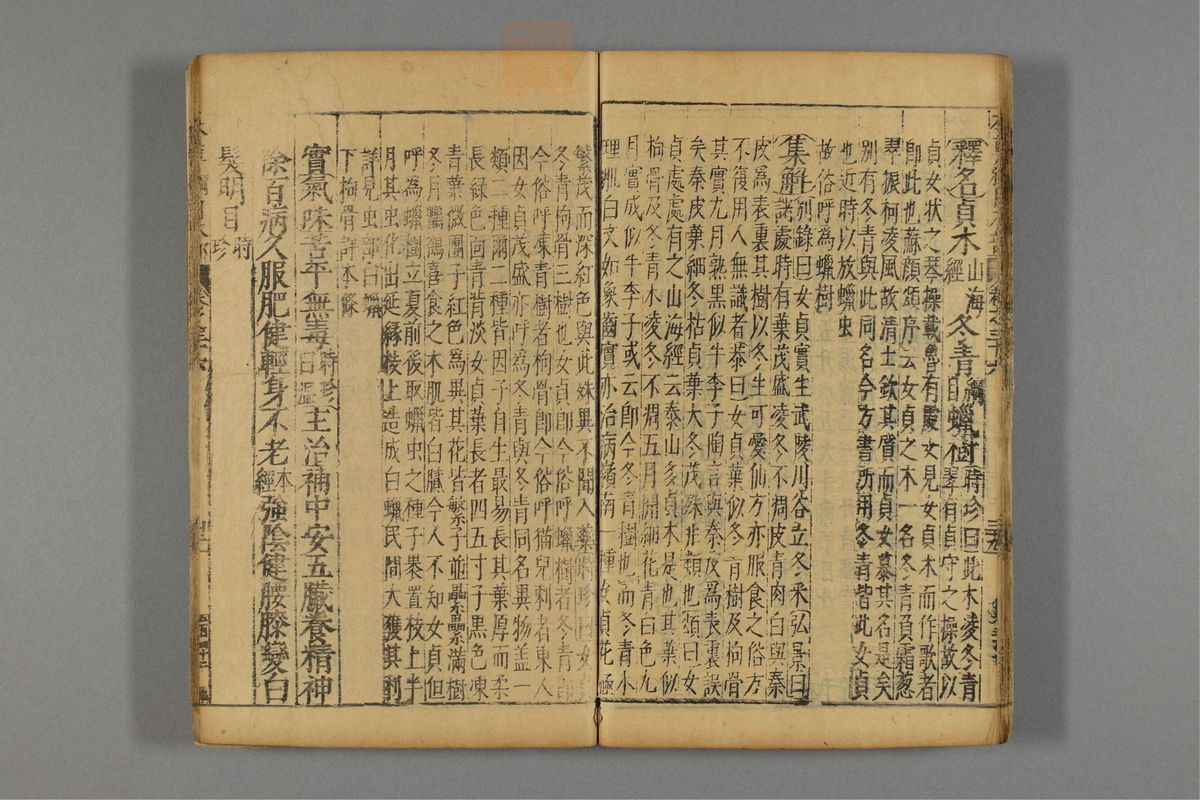 釋名貞木山海經冬青綱目蠟樹時珍曰此木凌冬青翠有貞守之操故以
貞女狀之琴操載魯有處女見女貞木而作歌者
即此也蘇顏頌序云女貞之木一名冬青負霜葱
翠振柯凌風故清士欽其質而貞女慕其名是矣
別有冬青與此同名今方書所用冬青皆此女貞
也近時以放蠟虫
故俗呼為蠟樹
集解別錄曰女貞實生武陵川谷立冬采弘景曰諸處時有葉茂盛凌冬不凋皮青肉白與秦
皮為表裏其樹以冬生可愛仙方亦服食之俗方
不復用人無識者恭曰女貞葉似冬青樹及枸骨
其實九月熟黑似牛李子陶言與秦皮為表裏誤
矣秦皮葉細冬枯貞葉大冬茂殊非類也頌曰女
貞處處有之山海經云泰山多貞木是也其葉似
枸骨及冬青木凌冬不凋五月開細花青白色九
月實成似牛李子或云即今冬青樹也而冬青木
理肌白文如象齒實亦治病嶺南一種女貞花極
繁茂而深紅色與此殊異不聞入藥時珍曰女貞
冬青枸骨三樹也女貞即今俗呼蠟樹者冬青即
今俗呼凍青樹者枸骨即今俗呼猫兒刺者東人
因女貞茂盛亦呼為冬青與冬青同名異物盖一
類二種爾二種皆因子自生最易長其葉厚而柔
長綠色面青背淡女貞葉長者四五寸子黑色凍
青葉微團子紅色為異其花皆繁子並纍纍滿樹
冬月鸜鵒喜食之木肌皆白膩今人不知女貞但
呼為蠟樹立夏前後取蠟虫之種子裹置枝上半
月其虫化出延緣枝上造成白蠟民間大獲其利
詳見虫部白蠟
下枸骨詳本條
實氣味苦平無毒時珍曰溫主治補中安五臟養精神
除百病久服肥健輕身不老本經強陰健腰膝變白
髮明目時珍